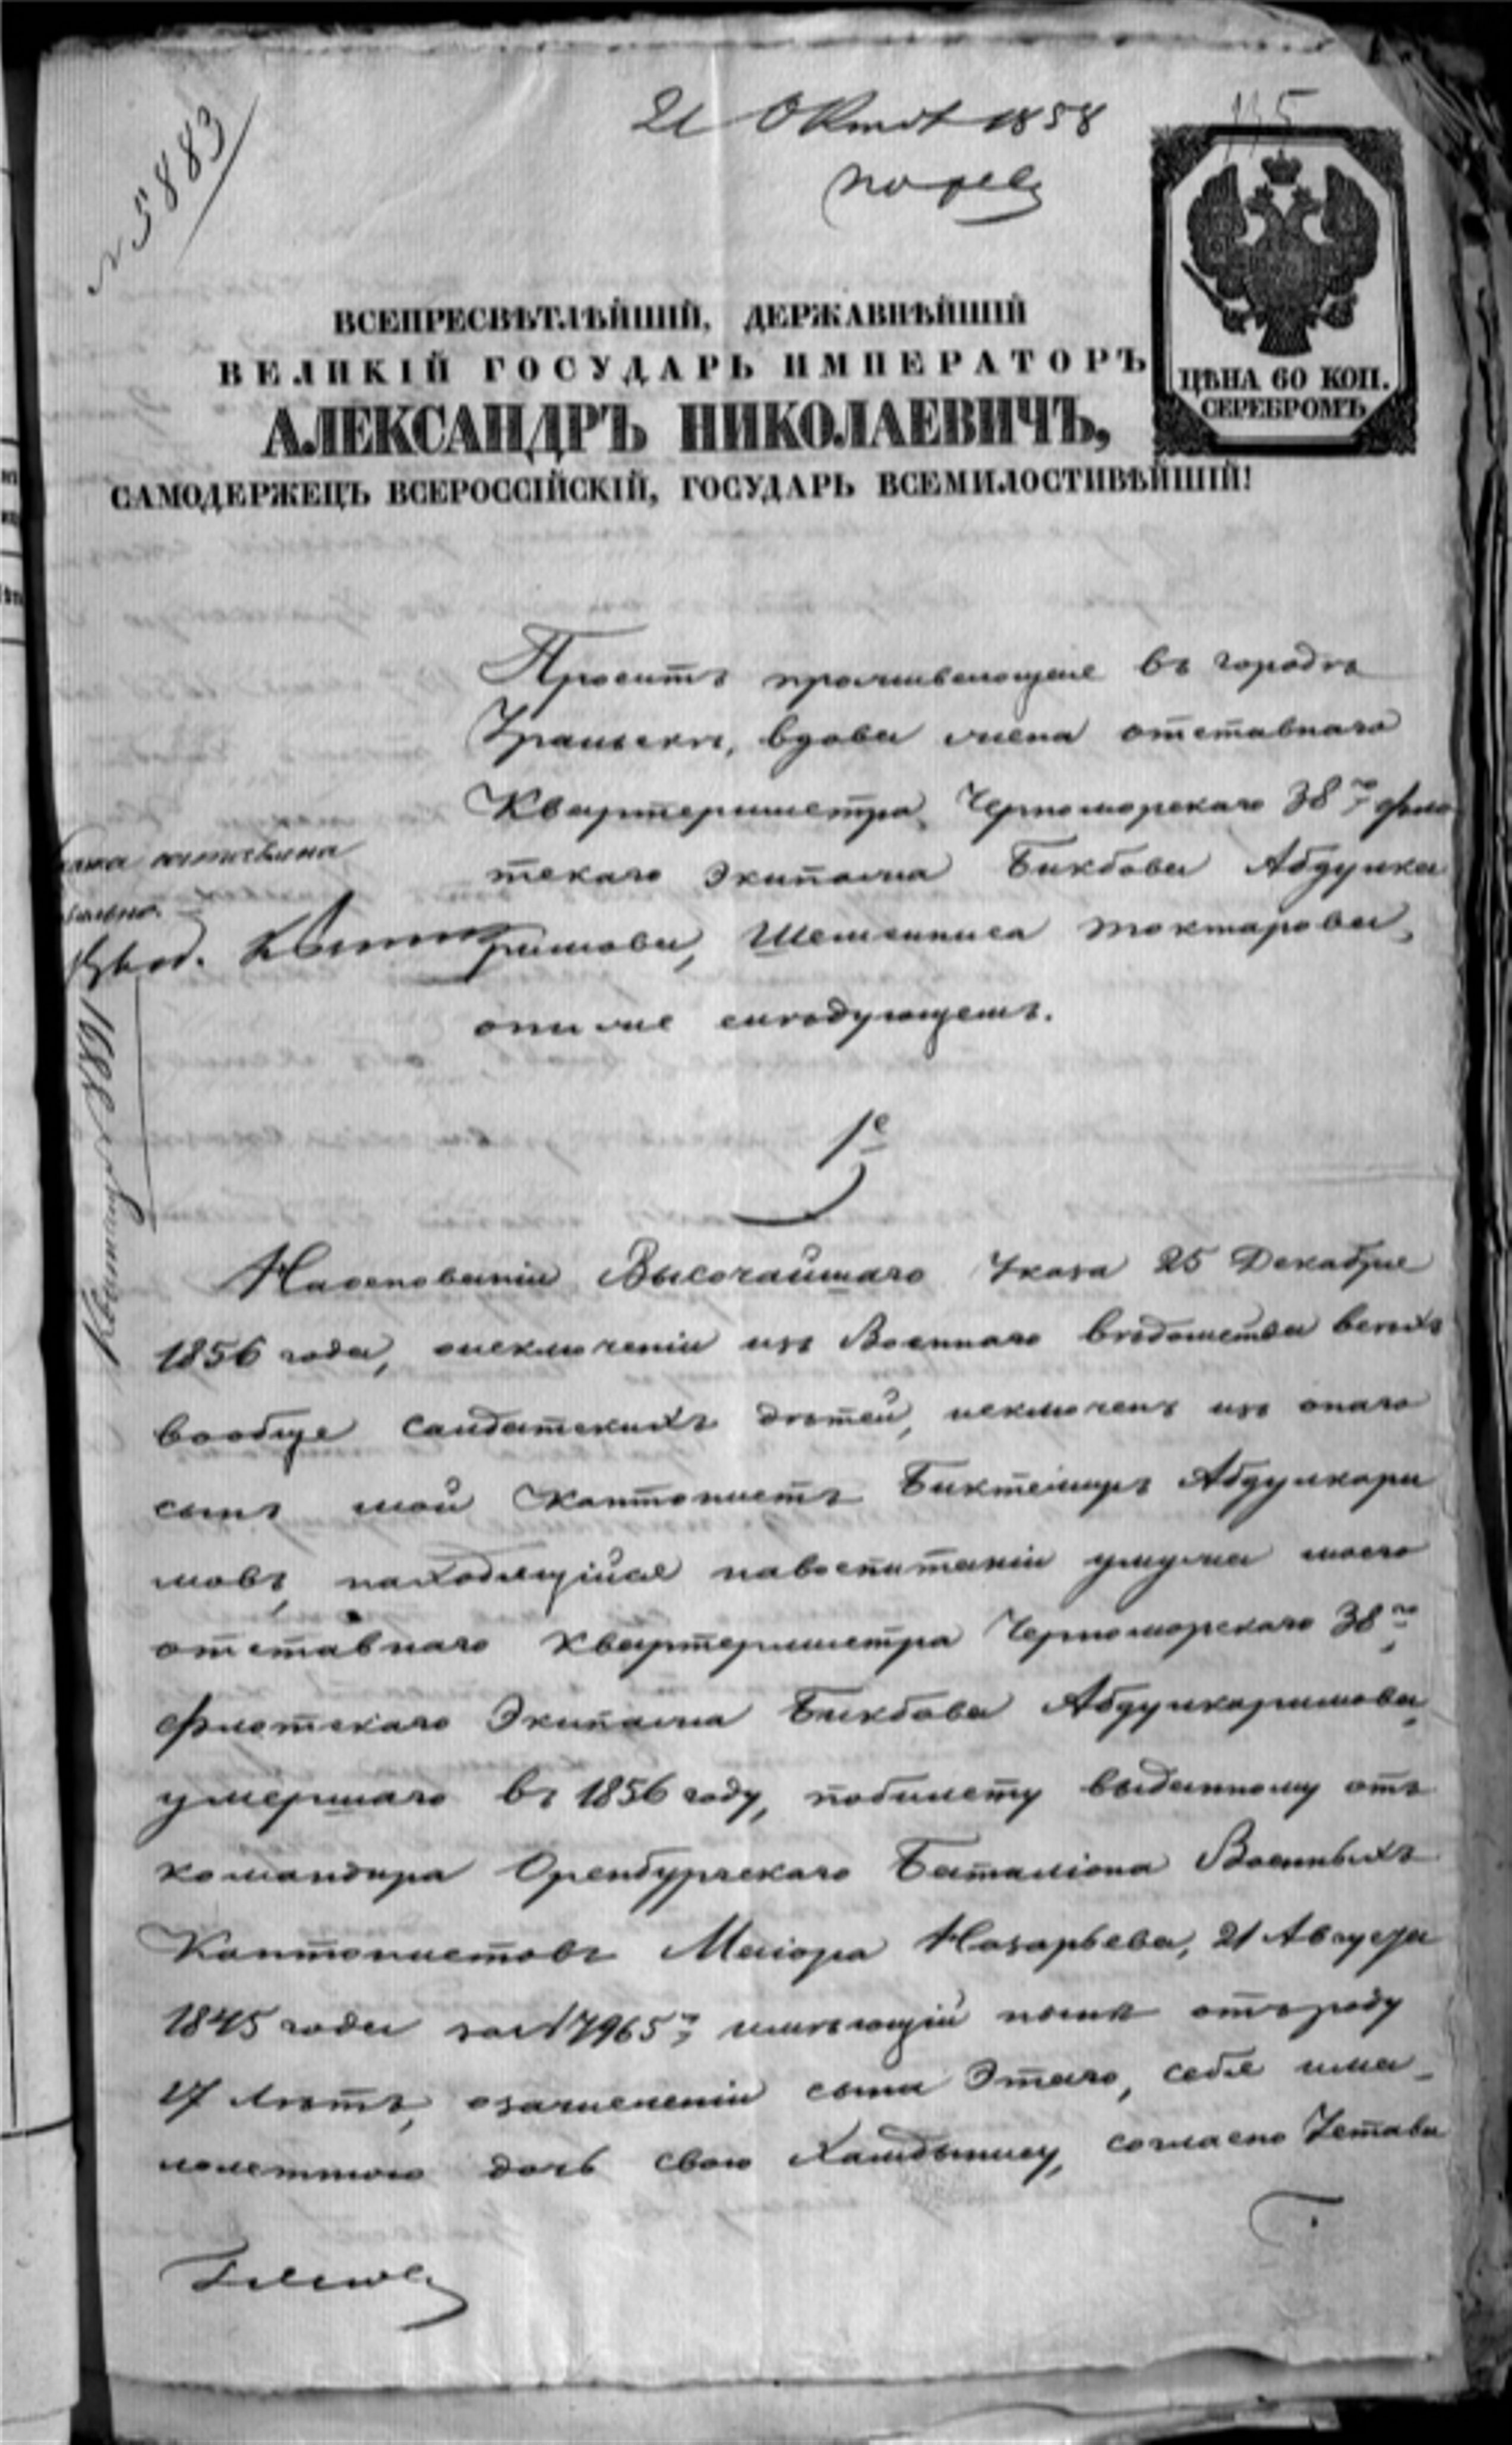 № 5883
21 Окт 1858
ВСЕПРЕСВѢТЛѢЙШІЙ, ДЕРЖАВНѢЙШІЙ
ВЕЛИКІЙ ГОСУДАРЬ ИМПЕРАТОРЪ
АЛЕКСАНДРЪ НИКОЛАЕВИЧЪ,
САМОДЕРЖЕЦЪ ВСЕРОССІЙСКІЙ, ГОСУДАРЬ ВСЕМИЛОСТИВѢЙШІЙ!
ЦѢНА 60 КОП.
СЕРЕБРОМЪ
Проситъ проживающая въ городѣ
Уральскѣ, вдова жена отставнаго
Квартермистра Черноморскаго 38го фло
тскаго Экипажа Бикбова Абдулка
римова, Шемсиниса Тохтарова,
онижеслѣдующемъ.
1е
Наосновании Высочайшаго Указа 25 Декабря
1856 года, оисключеніи изъ Военнаго вѣдомства всѣхъ
вообще салдатскихъ дѣтей, исключенъ изъ онаго
сынъ мой Кантонистъ Биктемиръ Абдулкари
мовъ, находящійся навоспитаніи умужа моего
отставнаго Квартермистра Черноморскаго 38го
Флотскаго Экипажа Бикбова Абдулкаримова,
умершаго въ 1856 году, побилету выданному отъ
командира Оренбургскаго Баталіона Военныхъ
Кантонистовъ Маіора Назарьева, 21 Августа
1845 года за № 7965м имѣющій нынѣ отъроду
17 лѣтъ, озачисленіи сына Этаго, себя има_
лолетнюю дочь свою согласно Устава